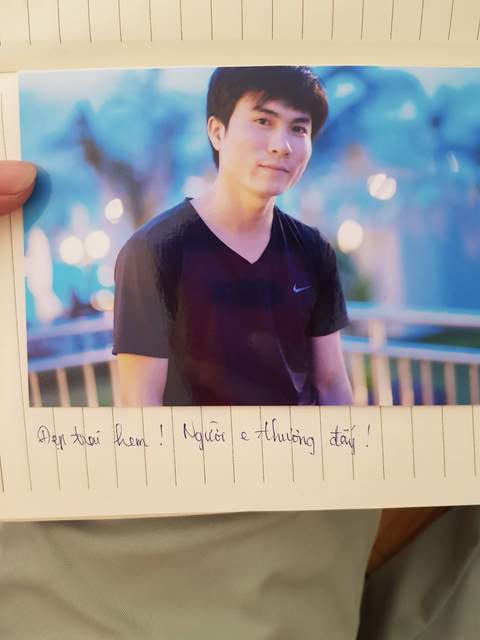 Đẹp trai hem ! Người e thương đấy !